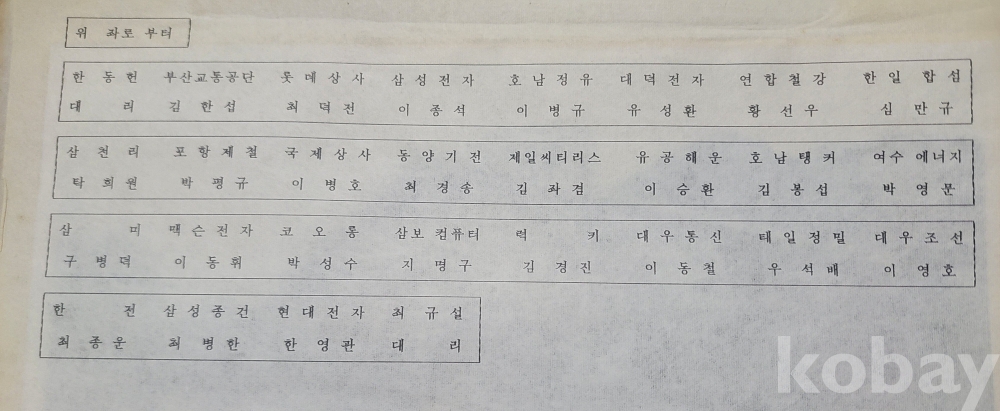 위 좌로 부터
한 동 헌 부산교통공단 롯데상사 삼성전자 호남정유 대덕전자 연합철강 한일 합섬
대 리 김한섭 최덕전 이종석 이병규 유성환 황선우 심만규
삼천리 포항제철 국제상사 동양기전 제일씨티리스 유공해운 호남탱커 여수에너지
탁희원 박평규 이병호 최경송 김좌겸 이승환 김봉섭 박영문
삼 미 맥슨전자 코오롱 삼보컴퓨터 럭 키 대우통신 태일정밀 대우조선
구병덕 이동휘 박성수 지명구 김경진 이동철 우석배 이영호
한 전 삼성종건 현대전자 최규설
최종운 최병한 한영관 대 리
kobay